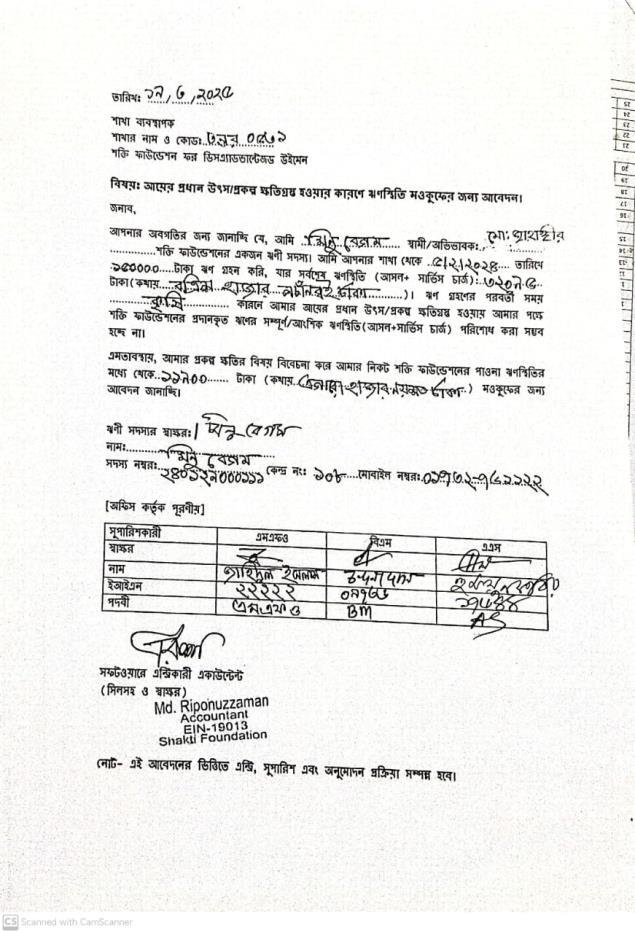 তারিখ: ১৯/৬/২০২৫
শাখা ব্যবস্থাপক
শাখার নাম ও কোড:
শক্তি ফাউন্ডেশন ফর ডিসএ্যাডভান্টেজড উইমেন
বিষয়: আয়ের প্রধান উৎস/প্রকল্প ক্ষতিগ্রস্থ হওয়ার কারণে ঋণস্থিতি মওকুফের জন্য আবেদন।
জনাব,
আপনার অবগতির জন্য জানাচ্ছি যে, আমি মিনু বেগম স্বামী/অভিভাবক: মো: জাহাঙ্গীর
শক্তি ফাউন্ডেশনের একজন ঋণী সদস্য। আমি আপনার শাখা থেকে ৫/২/২০২৪ তারিখে
১৫০০০০ টাকা ঋণ গ্রহন করি, যার সর্বশেষ ঋণস্থিতি (আসল+ সার্ভিস চার্জ):
টাকা (কথায়: বত্রিশ হাজার টাকা)। ঋণ গ্রহণের পরবর্তী সময়
কারনে আমার আয়ের প্রধান উৎস/প্রকল্প ক্ষতিগ্রস্থ হওয়ায় আমার পক্ষে
শক্তি ফাউন্ডেশনের প্রদানকৃত ঋণের সম্পূর্ণ/আংশিক ঋণস্থিতি(আসল+সার্ভিস চার্জ) পরিশোধ করা সম্ভব
হচ্ছে না।
এমতাবস্থায়, আমার প্রকল্প ক্ষতির বিষয় বিবেচনা করে আমার নিকট শক্তি ফাউন্ডেশনের পাওনা ঋণস্থিতির
মধ্যে থেকে ১১৯০০ টাকা (কথায় এগারো হাজার নয়শত টাকা) মওকুফের জন্য
আবেদন জানাচ্ছি।
ঋণী সদস্যর স্বাক্ষর: মিনু বেগম
নাম: মিনু বেগম
সদস্য নম্বর: কেন্দ্র নং: ১০৮ মোবাইল নম্বর:
[অফিস কর্তৃক পূরণীয়]
সুপারিশকারী এমএফও বিএম এএস
স্বাক্ষর
নাম
ইআইএন ২২২২২
পদবী এমএফও BM AS
সফটওয়ারে এন্ট্রিকারী একাউন্টেন্ট
(সিলসহ ও স্বাক্ষর)
Md. Riponuzzaman
Accountant
EIN-19013
Shakti Foundation
নোট- এই আবেদনের ভিত্তিতে এন্ট্রি, সুপারিশ এবং অনুমোদন প্রক্রিয়া সম্পন্ন হবে।
CS Scanned with CamScanner